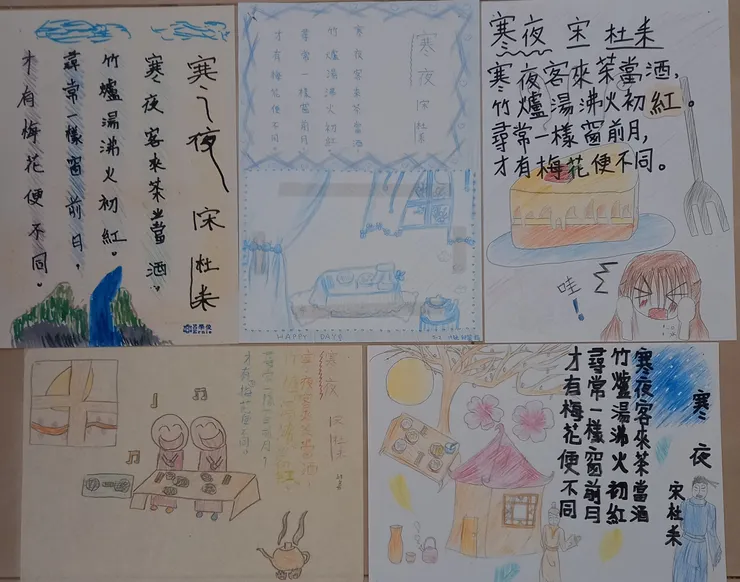 寒夜 宋 杜耒
寒夜客來茶當酒，
竹爐湯沸火初紅。
尋常一樣窗前月，
才有梅花便不同。
Ernie
寒夜 宋 杜耒
寒夜客來茶當酒
竹爐湯沸火初紅
尋常一樣窗前月
才有梅花便不同。
HAPPY DAYS
寒夜 宋 杜耒
寒夜客來茶當酒，
竹爐湯沸火初紅。
尋常一樣窗前月，
才有梅花便不同。
哇！
寒夜 宋 杜耒
寒夜客來茶當酒，
竹爐湯沸火初紅。
尋常一樣窗前月，
才有梅花便不同。
寒夜 宋 杜耒
寒夜客來茶當酒
竹爐湯沸火初紅
尋常一樣窗前月
才有梅花便不同